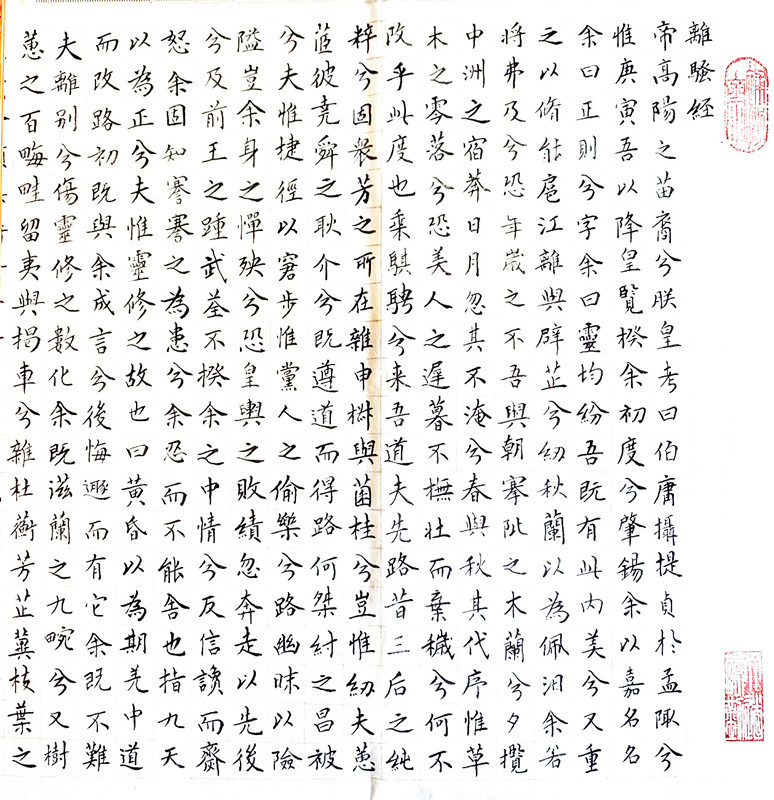 離騷経
帝高陽之苗裔兮朕皇考曰伯庸攝提貞於孟陬兮
惟庚寅吾以降皇覽揆余初度兮肇錫余以嘉名名
余曰正則兮字余曰靈均紛吾既有此内美兮又重
之以脩能扈江離與辟芷兮紉秋蘭以為佩汩余若
将弗及兮恐年歳之不吾與朝搴阰之木蘭兮夕攬
中洲之宿莽日月忽其不淹兮春與秋其代序惟草
木之零落兮恐美人之遅暮不撫壮而棄穢兮何不
改乎此度也乗騏騁兮来吾道夫先路昔三后之純
粹兮固衆芳之所在雜申椒與菌桂兮豈惟紉夫蕙
茝彼堯舜之耿介兮既遵道而得路何桀紂之昌被
兮夫惟捷徑以窘步惟黨人之偷樂兮路幽昧以險
隘豈余身之憚殃兮恐皇輿之敗績忽奔走以先後
兮及前王之踵武荃不揆余之中情兮反信讒而齌
怒余固知謇謇之為患兮余忍而不能舎也指九天
以為正兮夫惟靈修之故也曰黄昏以為期羌中道
而改路初既與余成言兮後悔遯而有它余既不難
夫離別兮傷靈修之數化余既滋蘭之九畹兮又樹
蕙之百畮畦留夷與揭車兮雜杜蘅芳芷冀枝葉之